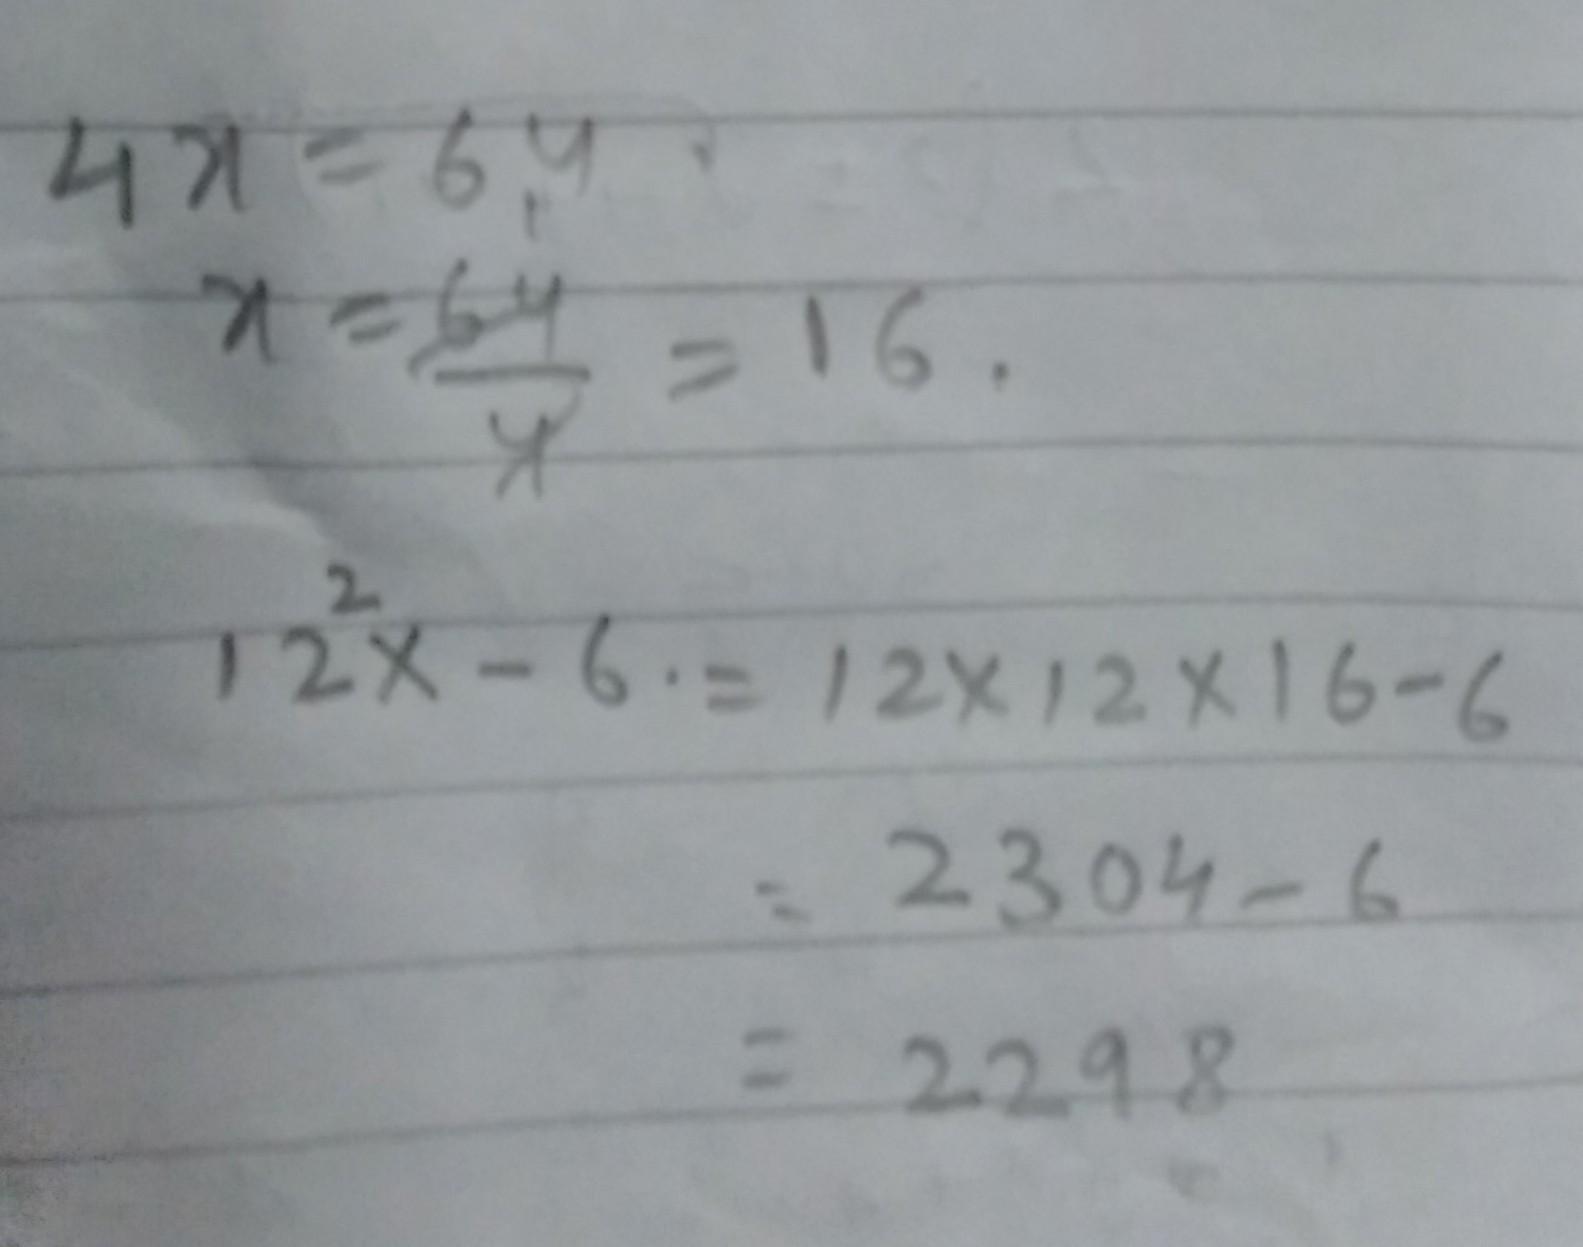 4x = 64
x = 64/4 = 16.
12²x - 6. = 12x12x16-6
= 2304-6
= 2298